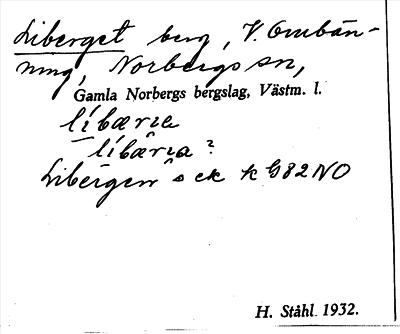 Liberget berg, V. Ombän-
ning, Norbergs sn,
Gamla Norbergs bergslag, Västm. l.
líbærıe
líbærıa?
Libergen s ek k G82NO
H. Ståhl 1932.